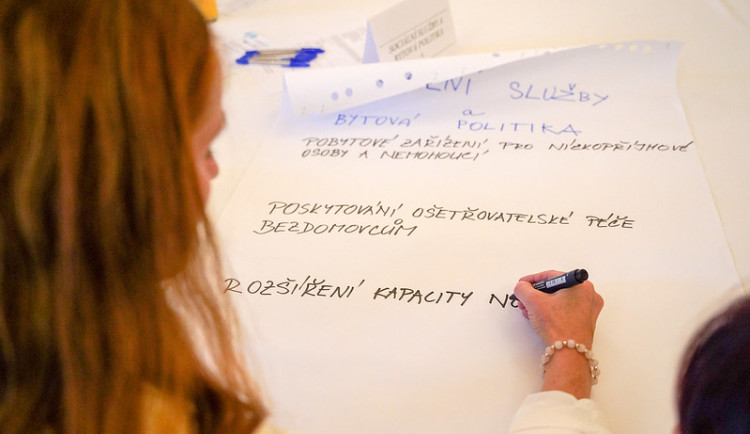 SOCIÁLNÍ SLUŽBY A
BYTOVÁ POLITIKA
SLUŽBY
a
BYTOVÁ POLITIKA
POBYTOVÉ ZAŘÍZENÍ PRO NÍZKOPŘÍJMOVÉ
OSOBY A NEMOHOUCÍ
POSKYTOVÁNÍ OŠETŘOVATELSKÉ PÉČE
BEZDOMOVCŮM
ROZŠÍŘENÍ KAPACITY